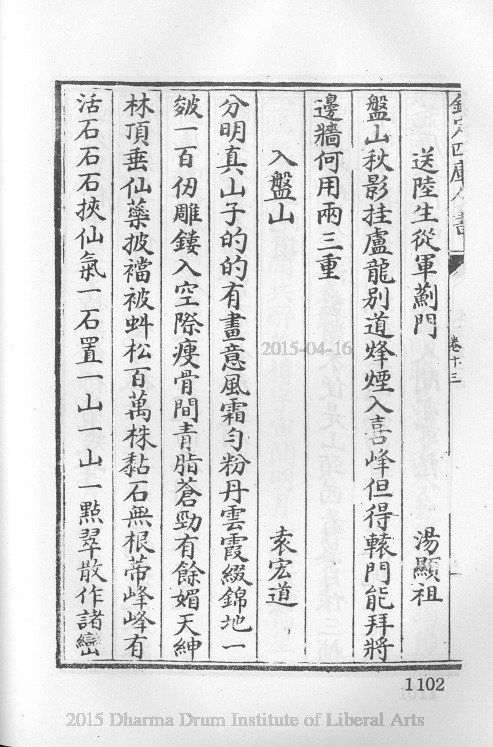 欽定四庫全書
卷十三
送陸生從軍薊門　湯顯祖
盤山秋影挂盧龍別道烽煙入喜峰但得轅門能拜將
邊牆何用兩三重
入盤山　袁宏道
分明真山子的的有畫意風霜勻粉丹雲霞綴錦地一
皴一百仞雕鏤入空際瘦骨間青脂蒼勁有餘媚天紳
林頂垂仙藥披襠被虯松百萬株黏石無根蒂峰峰有
活石石石挾仙氣一石置一山一山一點翠散作諸巒
1102
2015-04-16
2015 Dharma Drum Institute of Liberal Arts